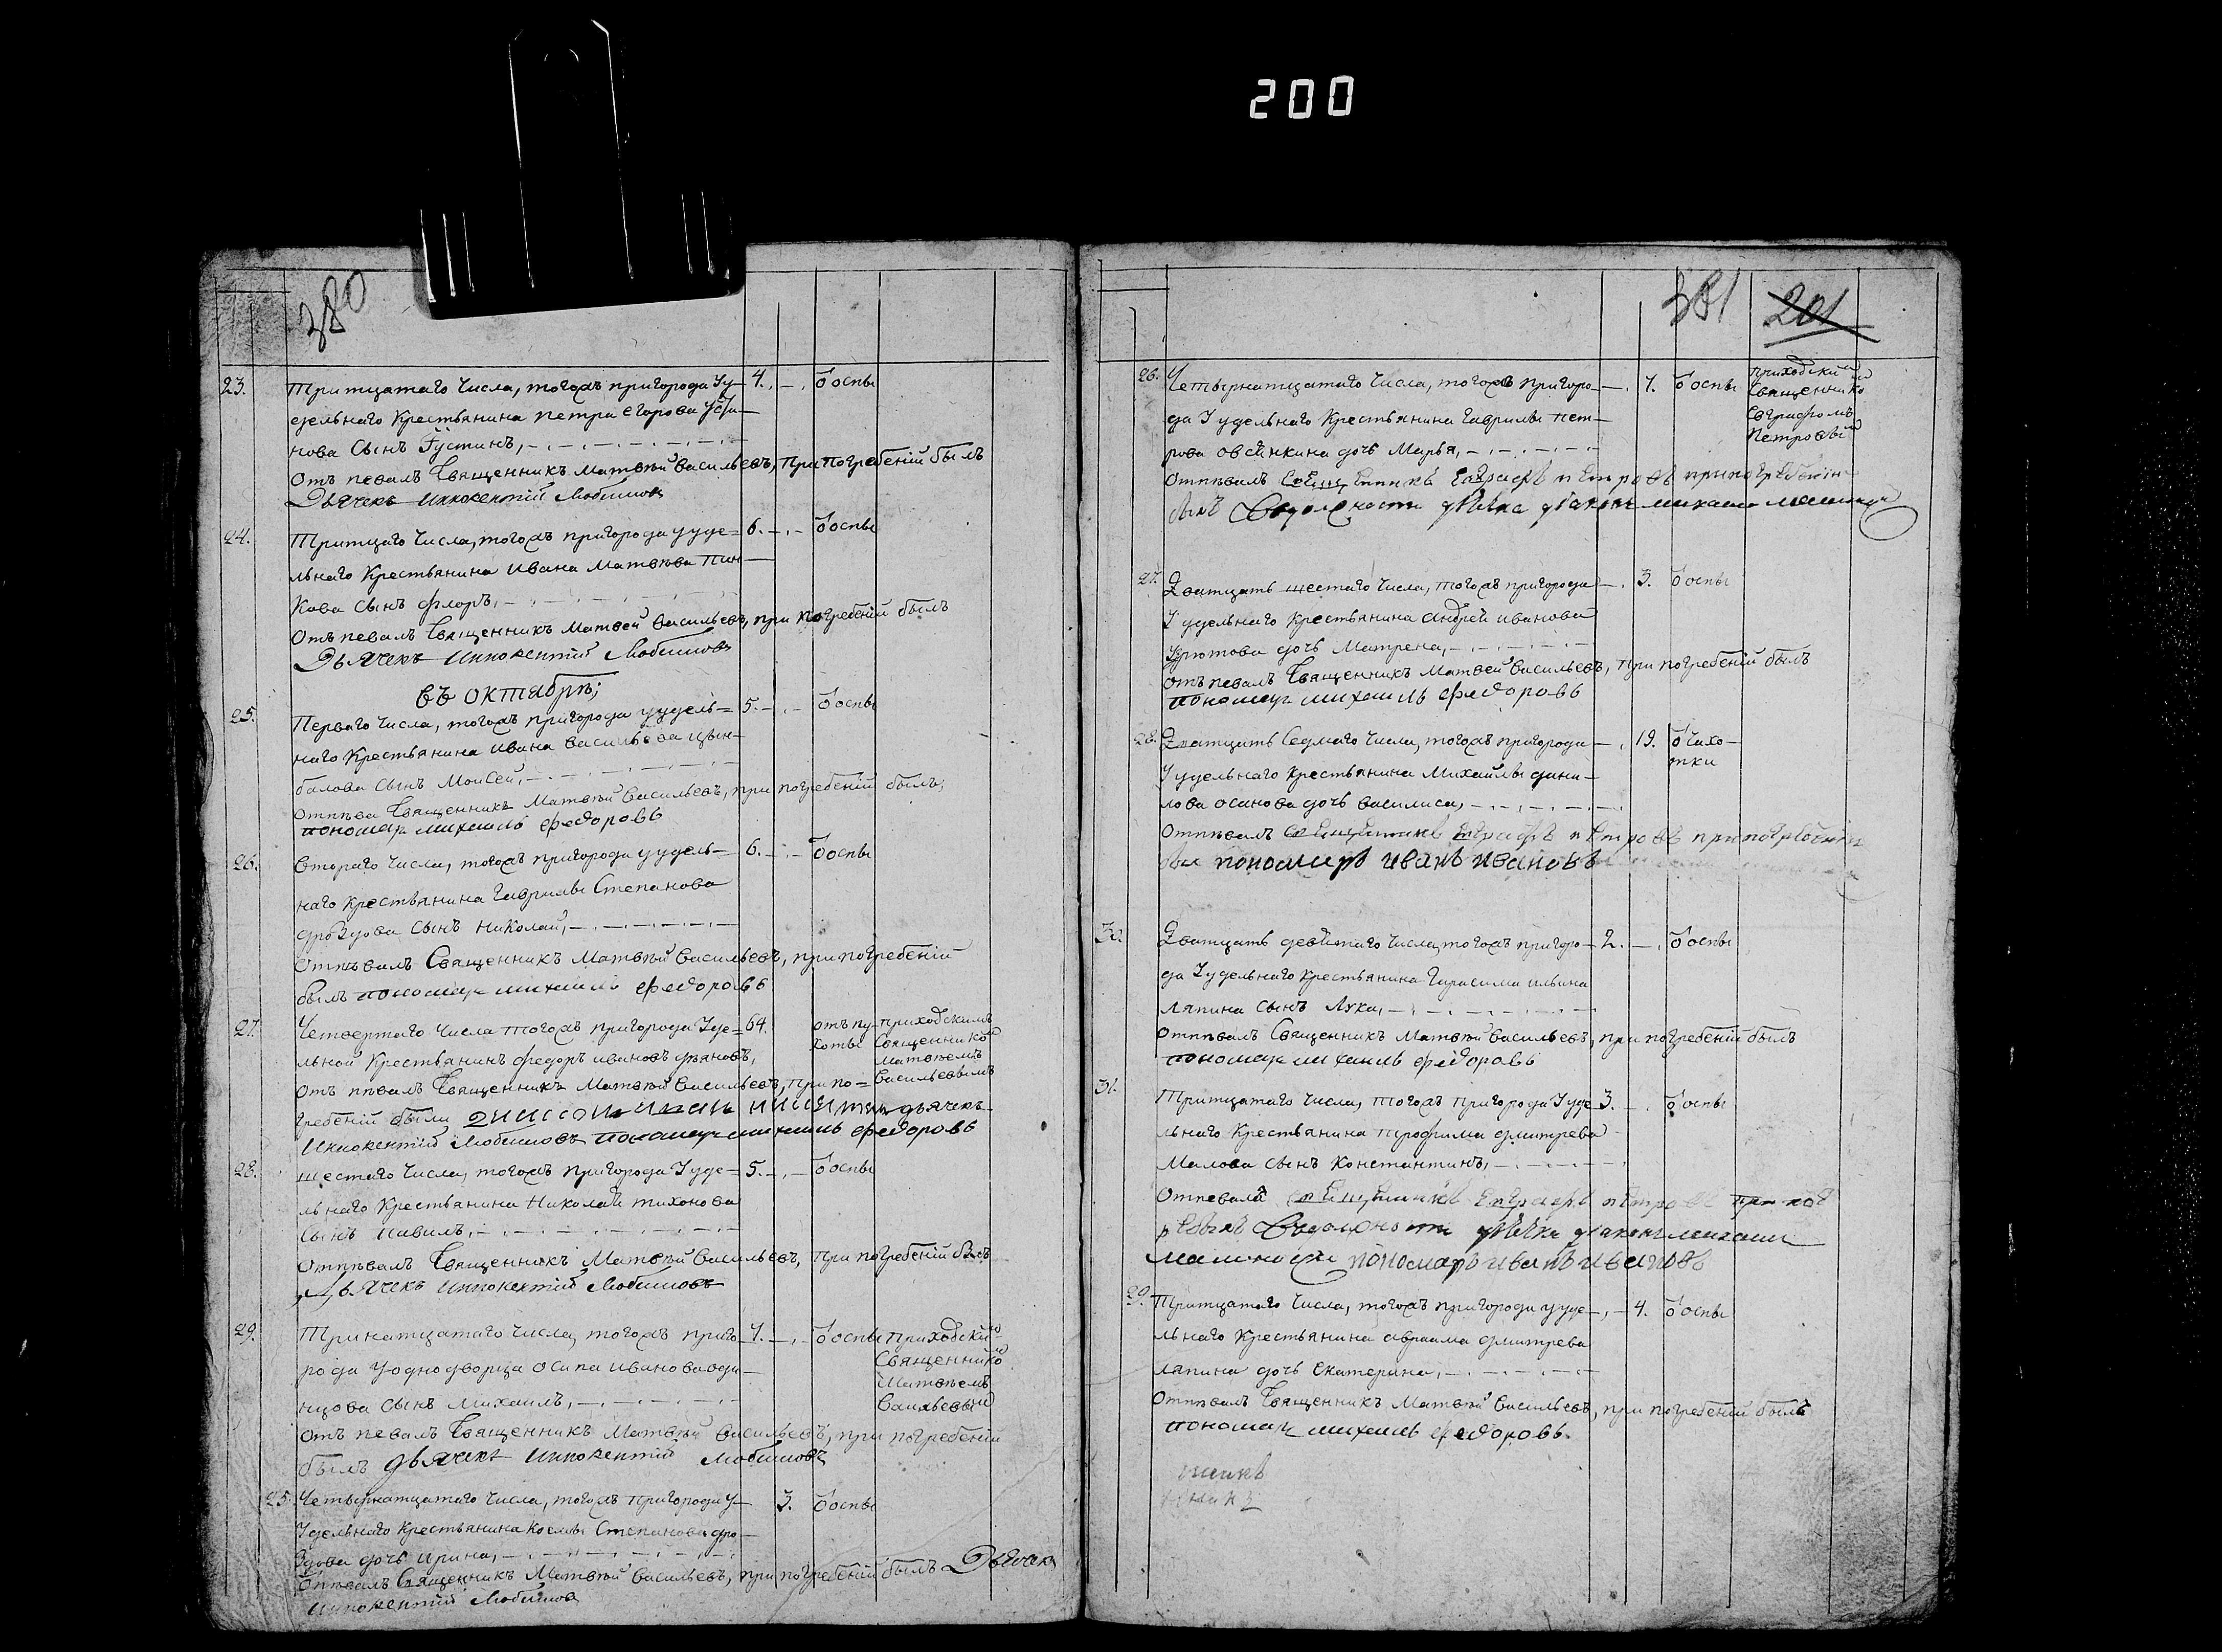 200
380
23. Тритцатаго Числа, тогожъ пригорода Уу- 4. -. ѿ оспы
дельнаго Крестьянина петра егорова
нова Сынъ Густинъ,
Отъ певалъ Священникъ Матвѣй Васильевъ, при погребенiй былъ
Дьячекъ Иннокентiй Любимовъ
24. Тритцаго Числа, тогожъ пригорода ууде= 6. -. ѿ оспы
льнаго Крестьянина ивана Матвѣева Пин-
кова Сынъ флоръ,
Отъ певалъ Священникъ Матвей Васильевъ, при погребенiй былъ
Дьячекъ Иннокентiй Любимовъ
въ октябрѣ;
25. Перваго Числа, тогожъ пригорода уудель= 5. -. ѿ оспы
наго Крестьянина ивана Васильева цын-
балова Сынъ Моисей,
Отпѣва Священникъ Матвѣй Васильевъ, при погребенiй былъ,
пономарь михаилъ федоровъ
26. Втораго Числа, тогожъ пригорода уудель= 6. -. ѿ оспы
наго крестьянина Гаврилы Степанова
дроздова Сынъ Николай,
Отпѣвалъ Священникъ Матвѣй Васильевъ, при погребенiй
былъ пономарь михаилъ федоровъ
27. Четвертаго Числа тогожъ пригорода Уде= 64. отъ пу- приходскимъ
льной Крестьянинъ федоръ ивановъ хоты Священнико
Матвѣемъ
Отъ пѣвалъ Священникъ Матвѣй Васильевъ, при по= Васильевымъ
гребенiй были дьячекъ
Иннокентiй Любимовъ пономарь михаилъ федоровъ
28. шестаго Числа, тогожъ пригорода Ууде- 5. -. ѿ оспы
льнаго Крестьянина Николая тихонова
Сынъ
Отпѣвалъ Священникъ Матвѣй Васильевъ, при погребенiй былъ
Дьячекъ Иннокентiй Любимовъ
29. Тринатцатаго Числа, тогожъ приго- 4. -. ѿ оспы приходски
рода Уоднодворца осипа иванова оди- Священнико
нцова Сынъ Михаилъ, Матвѣемъ
Васильевы
Отъ певалъ Священникъ Матвѣй Васильевъ, при погребенiй
былъ дьячекъ Иннокентiй Любимовъ
25. Четырнатцатаго Числа, тогожъ пригорода у- 3. ѿ оспы
Удельнаго Крестьянина Козмы Степанова дро-
здова дочь ирина,
Опѣвалъ Священникъ Матвѣй Васильевъ, при погребенiй былъ Дьячекъ
Иннокентiй Любимовъ
381 201
26. Четырнатцатаго Числа, тогожъ пригоро- -. ѿ оспы приходски
да Уудельнаго Крестьянина Гаврилы пет- Священнико
рова овсянкина дочь Марья, Евграфомъ
Петровы
Отпѣвалъ Священникъ Евграфъ петровъ при погребенiи
былъ Вдолжности дьячка дьаконъ михаилъ
27. Дватцать шестаго Числа, тогожъ пригорода -. 3. ѿ оспы
Уудельнаго Крестьянина Андрей иванова
дочь Матрена,
Отъ певалъ Священникъ Матвей Васильевъ, при погребенiй былъ
пономарь михаилъ федоровъ
28. Дватцать Седмаго Числа, тогожъ пригорода -. 19. ѿ Чахо-
Уудельнаго Крестьянина Михайлы дани- тки
лова осанова дочь Василиса,
Отпѣвалъ Священникъ Евграфъ петровъ при погребенiи
был пономарь иванъ ивановъ
30. Дватцать девятаго Числа, тогожъ пригоро- 2. -. ѿ оспы
да Уудельнаго Крестьянина Гарасима ильина
ляпина Сынъ Лука,
Отпѣвалъ Священникъ Матвѣй Васильевъ, при погребенiй былъ
пономарь михаилъ федоровъ
31. Тритцатаго Числа, тогожъ пригорода Ууде 3. -. ѿ оспы
льнаго Крестьянина трофима дмитрева
Малова Сынъ Константинъ,
Отпевалъ Священникъ Евграфъ петровъ при пог
ребенъ Вдолжности дьячка дьаконъ михаилъ
пономарь иванъ ивановъ
29. Тритцатаго Числа, тогожъ пригорода ууде- -. 4. ѿ оспы
льнаго Крестьянина авраама дмитрева
ляпина дочь Екатерина,
Отпѣвалъ Священникъ Матвѣй Васильевъ, при погребенiй былъ
пономарь михаилъ федоровъ